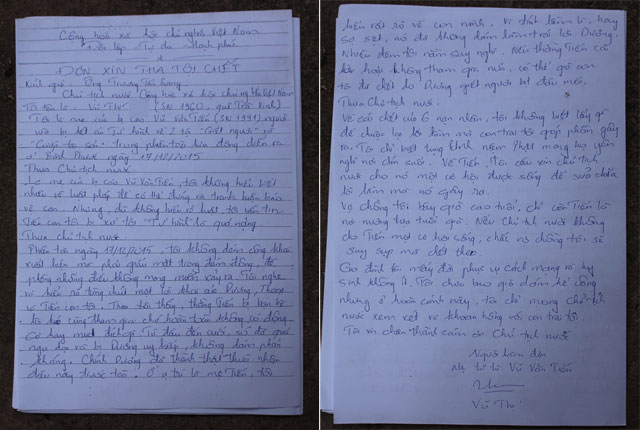 Cộng hòa xã hội chủ nghĩa Việt Nam
Độc lập - Tự do - Hạnh phúc
ĐƠN XIN THA TỘI CHẾT
Kính gửi: Ông Trương Tấn Sang
Chủ tịch nước Cộng hòa xã hội chủ nghĩa Việt Nam
Tôi tên là: Vũ Thị (SN 1960, quê Trà Vinh)
Tôi là mẹ của bị cáo Vũ Văn Tiến (SN 1991) người
vừa bị kết án Tử hình về 2 tội "Giết người" và
"Cướp tài sản" trong phiên toà lưu động diễn ra
ở Bình Phước ngày 17/12/2015
Thưa Chủ tịch nước
Là mẹ của bị cáo Vũ Văn Tiến, tôi không hiểu biết
nhiều về luật pháp để có thể đứng ra tranh luận bào
về con. Nhưng, dù không hiểu rõ luật tôi vẫn tin
Tiến con tôi bị xử tội "Tử hình" là quá nặng
Thưa Chủ tịch nước
Phiên toà ngày 17/12/2015, tôi không dám công khai
xuất hiện mà phải giấu mặt trong đám đông, để
phòng những điều không mong muốn xảy ra. Tôi nghe
và hiểu rõ từng chút một lời khai của Dương, Thoại
và Tiến con tôi. Theo tôi thấy, thằng Tiến bị bạn bè
lôi kéo cùng tham gia chứ hoàn toàn không có động
cơ hay mục đích gì. Từ đầu đến cuối, nó đã quá
ngu dại và bị Dương uy hiếp, không dám phản
kháng. Chính Dương đã thành thật thừa nhận
điều này trước toà. Ở vị trí là mẹ Tiến, tôi
hiểu rất rõ về con mình. Vì tính hiền lì, hay
sợ sệt, nó đã không dám làm trái lời Dương.
Nhiều đêm tôi nằm suy nghĩ. Nếu thằng Tiến cãi
lời hoặc không tham gia nữa, có thể giờ con
tôi đã chết do Dương giết người bịt đầu mối.
Thưa Chủ tịch nước
Về cái chết của 6 nạn nhân, tôi không biết lấy gì
để chuộc lại lỗi lầm mà con trai tôi góp phần gây
ra. Tôi chỉ biết tụng kinh niệm Phật mong họ yên
nghỉ nơi chín suối. Về Tiến, tôi cầu xin Chủ tịch
nước cho nó một cơ hội được sống để sửa chữa
lỗi lầm mà nó gây ra.
Vợ chồng tôi bây giờ cao tuổi, chỉ còn Tiến là
nơi nương tựa tuổi già. Nếu Chủ tịch nước không
cho Tiến một cơ hội sống, chắc vợ chồng tôi sẽ
suy sụp mà chết theo
Gia đình tôi mấy đời phục vụ cách mạng và hy
sinh không ít. Tôi chưa bao giờ dám kể công
nhưng ở hoàn cảnh này, tôi chỉ mong Chủ tịch
nước xem xét và khoan hồng với con trai tôi.
Tôi xin chân thành cảm ơn Chủ tịch nước
Người làm đơn
Mẹ tử tù Vũ Văn Tiến
Vũ Thị